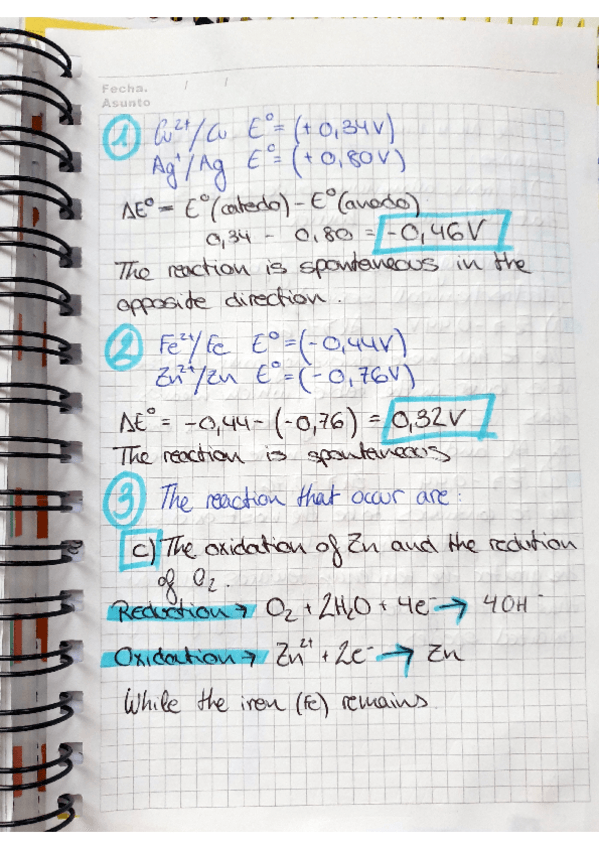 Fecha. / /
Asunto
1 Cu²⁺/Cu E⁰= (+ 0,34V)
Ag⁺/Ag E⁰= (+ 0,80V)
ΔE⁰= E⁰(catedo) - E⁰(anodo)
0,34 - 0,80 = -0,46V
The reaction is spontaneous in the
opposite direction.
2 Fe²⁺/Fe E⁰=(-0,44V)
Zn²⁺/Zn E⁰=(-0,76V)
ΔE⁰= -0,44-(-0,76) = 0,32V
The reaction is spontaneous
3 The reaction that occur are:
c) The oxidation of Zn and the redution
of O₂.
Reduction → O₂ + 2H₂O + 4e⁻ → 4OH⁻
Oxidation → Zn²⁺ + 2e⁻ → Zn
While the iren (Fe) remains.